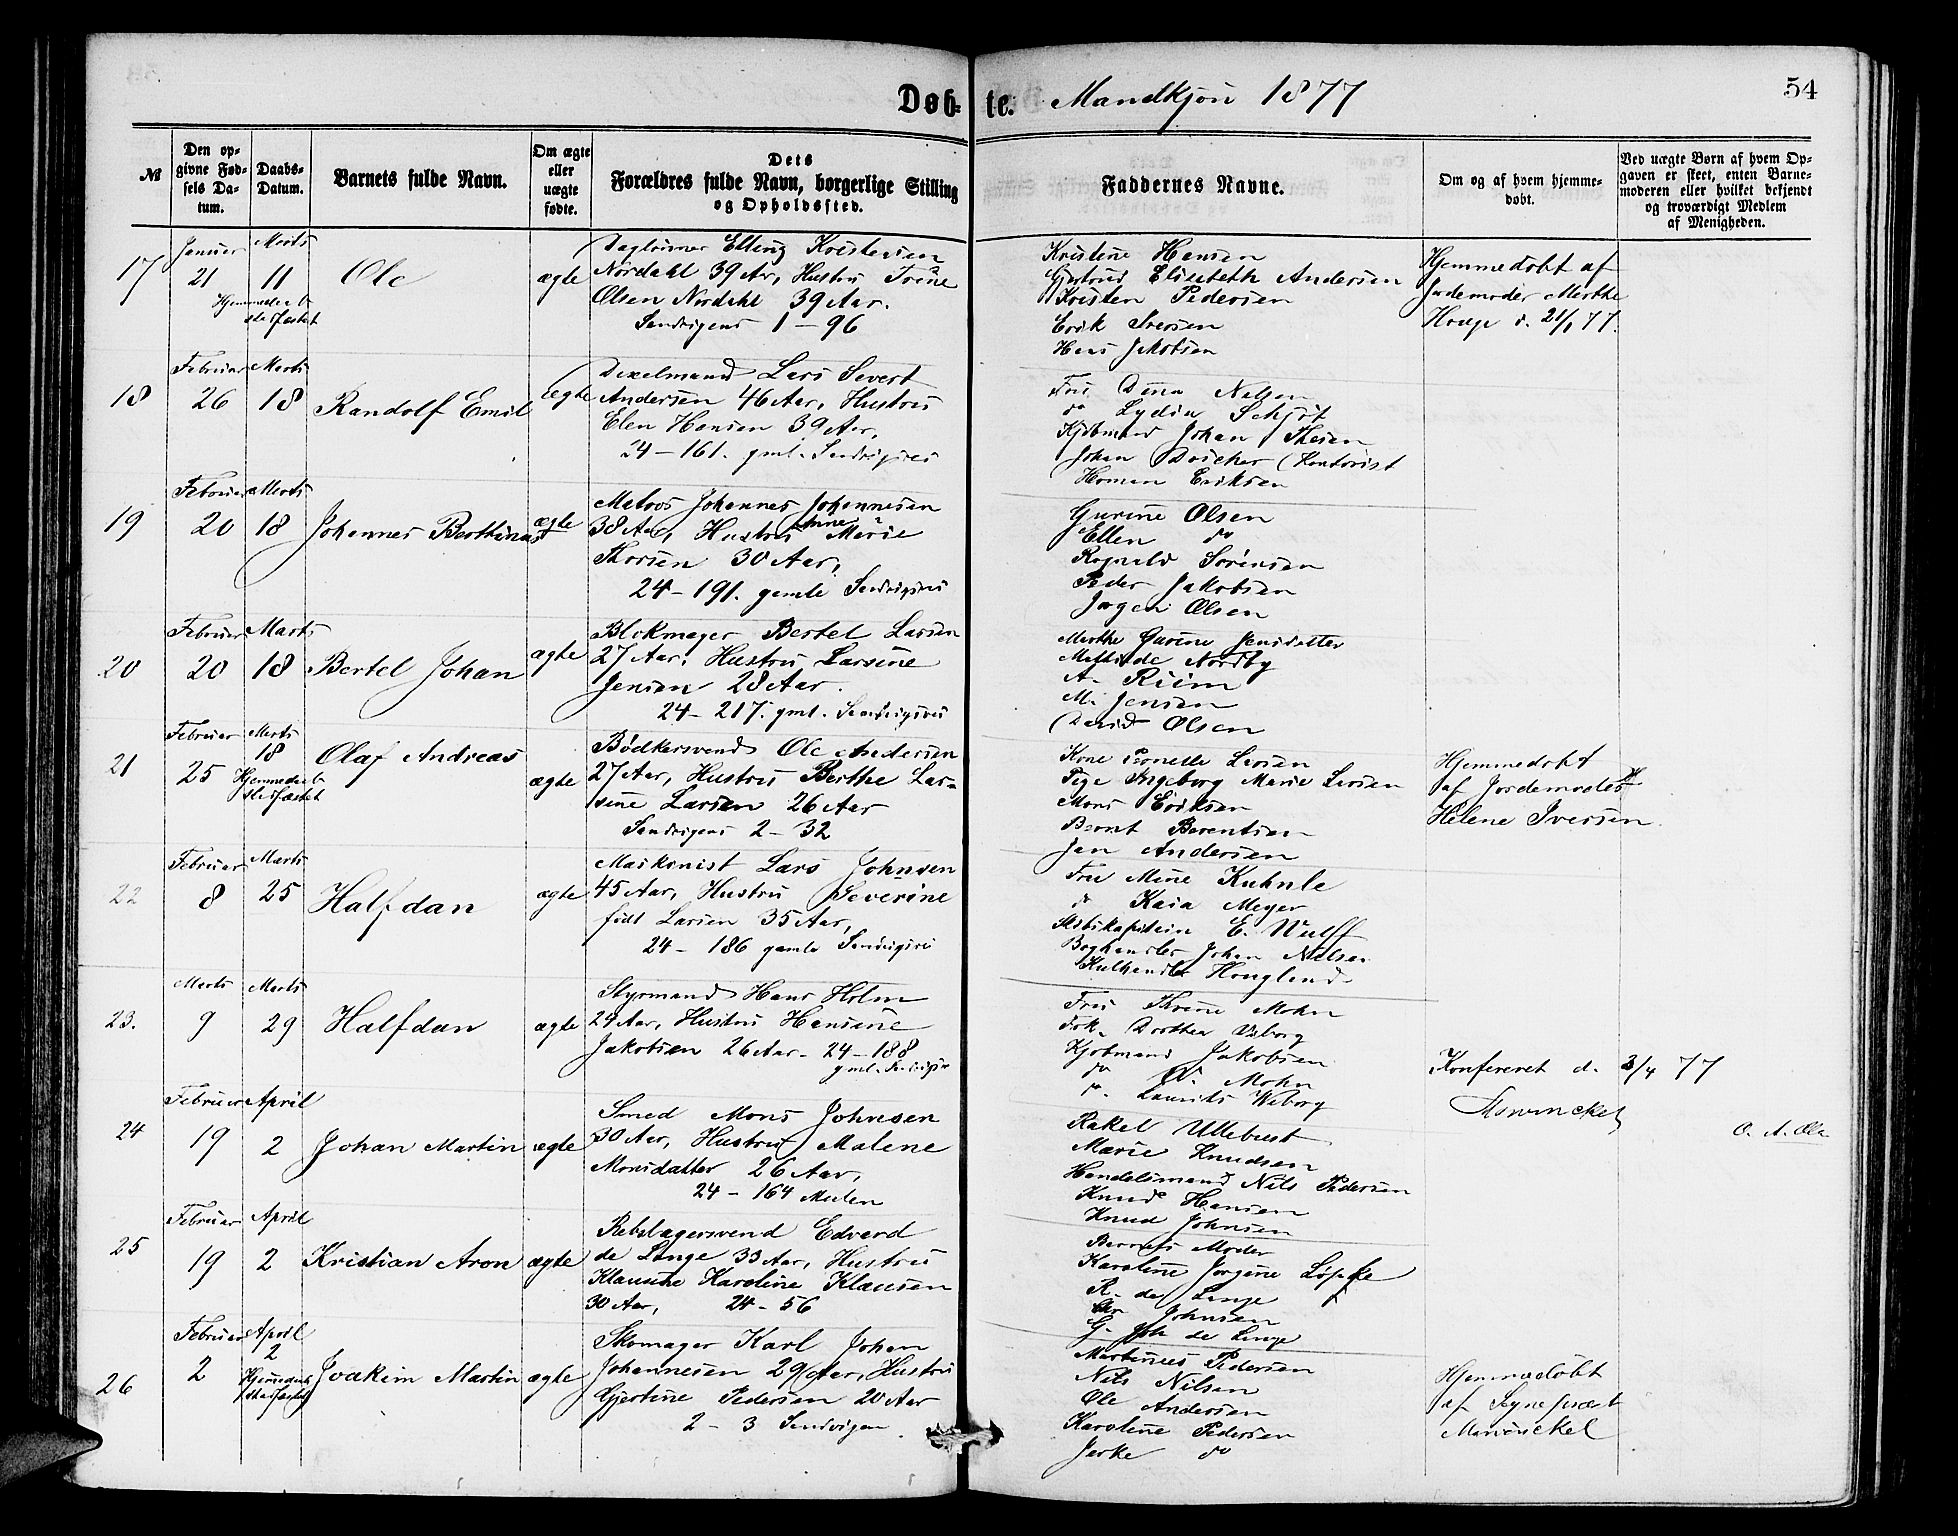 Døb-te. Mandkjøn 1877
54
№
Den opgivne Fødsels Datum.
Daabs-Datum.
Barnets fulde Navn.
Om ægte eller uægte fødte.
Dets Forældres fulde Navn, borgerlige Stilling og Opholdssted.
Faddernes Navne.
Om og af hvem hjemmedøbt.
Ved uægte Børn af hvem Opgaven er skeet, enten Barnemoderen eller hvilket bekjendt og troværdigt Medlem af Menigheden.
17
Januar 21
Marts 11
Hjemmedaab stadfæstet
Ole
ægte
Daglønner Elling Kristensen
Nordahl 39 Ar, Hustru
Olsen Nordahl 39 Aar.
Sandvigens 1-96
Kristine Hansen
Gjertrud Elisabeth Andersen
Kristen Pedersen
Erik Iversen
Hans Jakobsen
Hjemmedøbt af
Jordemoder Marthe
Hauge d. 21/1 77.
18
Februar 26
Marts 18
Randolf Emil
ægte
Lars Severt
Andersen 46 Aar, Hustru
Elen Hansen 39 Aar,
24-161. gml. Sandvigsvei
Fru Dina Nelsen
do Lydia Schjøt
Kjøbmand Johan Thesen
Johan Kontorist
Homan Eriksen
19
Februar 20
Marts 18
Johannes Berthinus
ægte
Matros Johannes Johannesen
38 Aar, Hustru Anne Marie
Thorsen 30 Aar,
24-191. gamle Sandvigsvei
Gurine Olsen
Ellen do
Ragnald Sørensen
Peder Jakobsen
Jørgen Olsen
20
Februar 20
Marts 18
Bertel Johan
ægte
Blokmager Bertel Larsen
27 Aar, Hustru Larsine
Jensen 28 Aar.
24-217. gml. Sandvigsvei
Marthe Gurine Jensdatter
Mathilde Nordby
A. Riim
M. Jensen
David Olsen
21
Februar 25
Marts 18
Hjemmedaab stadfæstet
Olaf Andreas
ægte
Bødkersvend Ole Andersen
27 Aar, Hustru Berthe Lar-
sine Larsen 26 Aar
Sandvigens 2-32
Kone Pernelle Larsen
Pige Ingeborg Marie Larsen
Mons Eriksen
Bernt Berentsen
Jan Andersen
Hjemmedøbt
af Jordemoder
Helene Iversen.
22
Februar 8
Marts 25
Halfdan
ægte
Maskinist Lars Johnsen
45 Aar, Hustru Severine
født Larsen 35 Aar,
24-186 gamle Sandvigsvei
Fru Mine Kuhnle
do Kaia Meyer
Skibskaptein E. Wulff
Boghandler Johan Nilsen
Kulhandler Haugland
23.
Marts 9
Marts 29
Halfdan
ægte
Styrmand Hans Holm
29 Aar, Hustru Hansine
Jakobsen 26 Aar. 24-188
gml. Sandvigsv
Fru Throne Mohn
Frk. Dorthea Wiborg
Kjøbmand Jakobsen
do Mohn
do. Laurits Wiborg
Konfereret d. 3/4 77
24
Februar 19
April 2
Johan Martin
ægte
Smed Mons Johnsen
30 Aar, Hustru Malene
Monsdatter 26 Aar,
24-164 Mulen
Rakel Ullebust
Marie Knudsen
Handelsmand Nils Pedersen
Knud Hansen
Knud Johnsen
25
Februar 19
April 2
Kristian Aron
ægte
Rebslagersvend Edvard
de Lange 33 Aar, Hustru
Klausine Karoline Klausen
30 Aar, 24-56
Barnets Moder
Karoline Jørgine Løpke
R. de Lange
Johnsen
G. Joh de Lange
26
Februar 2
April 2
Hjemmedaab stadfæstet
Joakim Martin
ægte
Skomager Karl Johan
Johannesen 29 Aar, Hustru
Gjertine Pedersen 20 Aar
2-3 Sandvigen.
Martinus Pedersen
Nils Nilsen
Ole Andersen
Karoline Pedersen
Jerke do
Hjemmedøbt
af Sognepræst